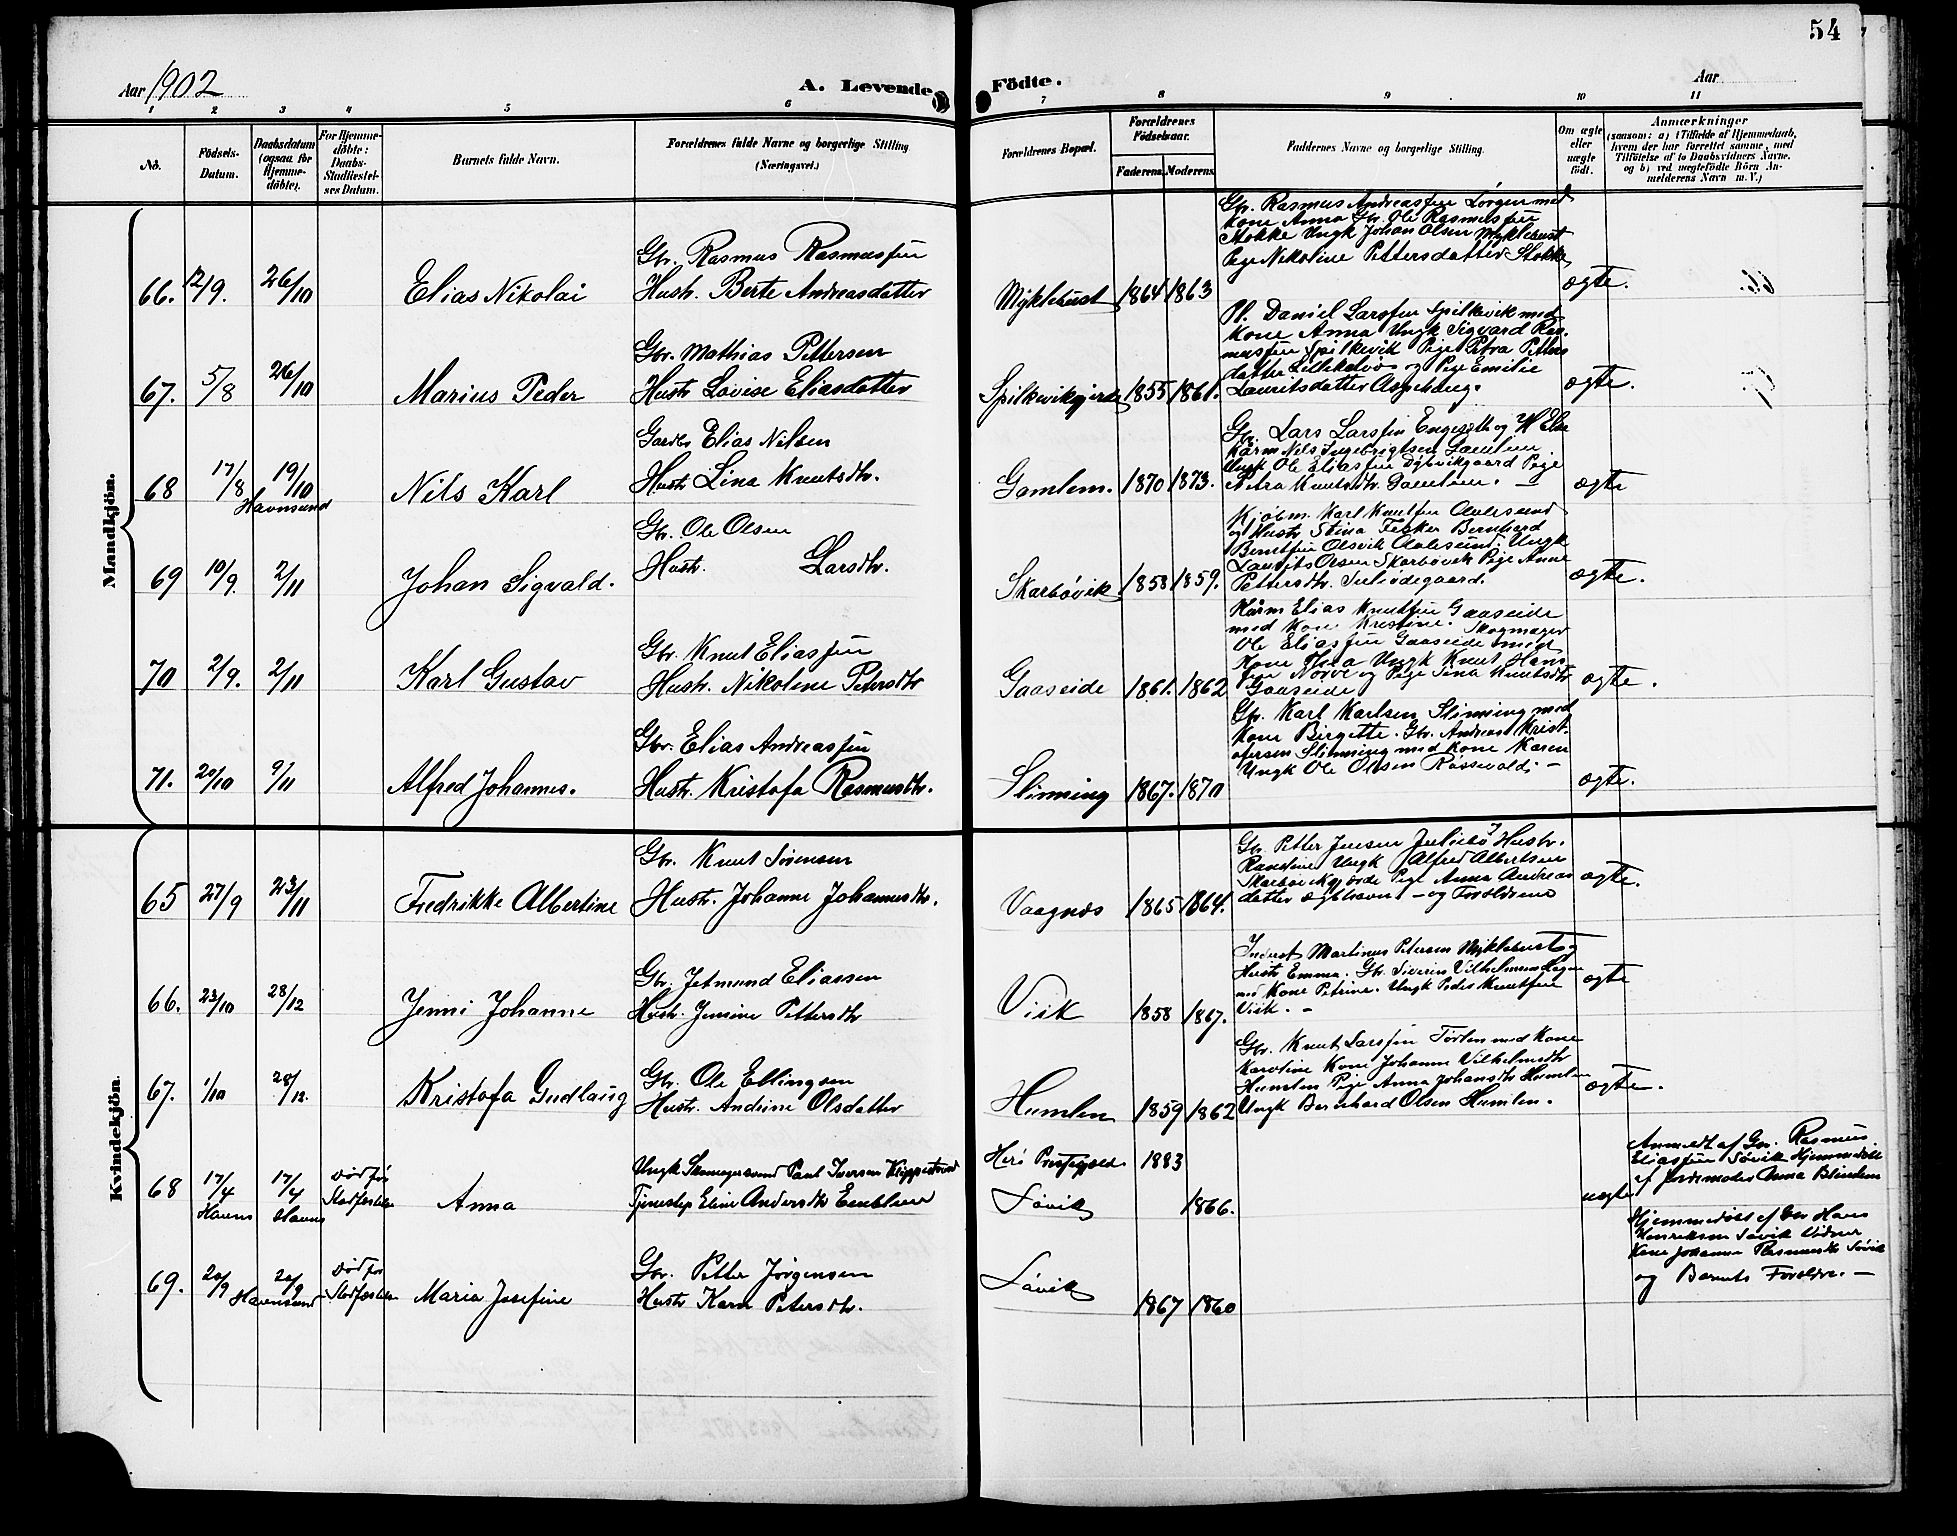 54
Aar 1902
A. Levende
Födte.
Aar
1 2 3 4 5 6 7 8 9 10 11
No.
Födsels-
Datum.
Daabsdatum
(ogsaa for
Hjemme-
döbte).
For Hjemme-
döbte:
Daabs-
Stadfæstel-
ses Datum.
Barnets fulde Navn.
Forældrenes fulde Navne og borgerlige Stilling
(Næringsvei.)
Forældrenes Bopæl.
Forældrenes
Födselsaar.
Faderens. Moderens.
Faddernes Navne og borgerlige Stilling.
Om ægte
eller
uægte
födt.
Anmærkninger
(saasom: a) i Tilfælde af Hjemmedaab,
hvem der har forrettet samme, med
Tilföielse af to Daabsvidners Navne,
og b) ved uægtefödte Börn An-
melderens Navn m. V.)
Mandkjön.
66. 12/9. 26/10 Elias Nikolai
Gbr. Rasmus Rasmussen
Hustr. Berte Andreasdatter
Myklebust 1864 1863
Gbr. Rasmus Andreassen Lorgen med
Kone Anna Gbr. Ole Rasmussen
Stokke Ungk Johan Olsen Myklebust
Pige Nikoline Pettersdatter Stokke
ægte.
67. 5/8 26/10 Marius Peder
Gbr. Mathias Pettersen
Hustr Lovise Eliasdatter
Spilkevikgjerde 1855 1861.
Pl. Daniel Larssen Spilkevik med
Kone Anna Ungk Sigvard Ras-
mussen Spilkevik Pige Petra Petters
datter Lillekalvø og Pige Emilie
Lauritsdatter Aspehaug.
ægte.
68 17/8 19/10 Havnsund Nils Karl
Gaardbr Elias Nilsen
Hustr Lina Knutsdtr.
Gamlem. 1870 1873.
Gbr. Lars Larssen Engeseth og
Kårm Nils Ingebrigtsen Gamlem
Ungk Ole Eliassen Dybvikgaard Pige
Petra Knutsdtr. Gamlem. —
ægte
69 10/9. 2/11 Johan Sigvald.
Gbr. Ole Olsen
Hustr. Larsdtr.
Skarbövik 1858 1859.
Kjøbm. Karl Knutsen Aalesund
og Hustr Stina Fisker Bernhard
Berntsen Olsvik Aalesund. Ungk
Laurits Olsen Skarbövik Pige Anne
Pettersdtr. Juliødegaard.
ægte.
70 2/9. 2/11 Karl Gustav
Gbr. Knut Eliassen
Hustr. Nikoline Petersdtr
Gaaseide 1861. 1862
Kårm Elias Knutsen Gaaseide
med Kone Kristine. Skogmager
Ole Eliassen Gaaseide med
Kone Thea Ungk Knut Hans
sen Nørve og Pige Sina Knutsdtr
Gaaseide
ægte.
71. 20/10 9/11 Alfred Johannes.
Gbr. Elias Andreassen
Hustr. Kristofa Rasmusdtr.
Slinning 1867. 1870
Gbr. Karl Karlsen Slinning med
Kone Birgitte. Gbr. Andreas Krist-
ofersen Slinning med Kone Karen
Ungk Ole Olsen Røssevold. —
ægte.
Kvindekjön.
65 27/9 23/11 Fredrikke Albertine
Gbr. Knut Sørensen
Hustr. Johanne Johannesdtr.
Vaagnes 1865 1864.
Gbr. Petter Jensen Juliebø Hustr.
Randine Ungk Alfred Albertsen
Skarbövikgjerde Pige Anna Andreas
datter — og Forældrene
ægte.
66. 23/10 28/12 Jenni Johanne
Gbr. Jetmund Eliassen
Hustr. Jensine Pettersdtr
Viik 1858 1867.
Inderst Martinus Petersen Myklebust og
Hustr Emma. Gbr. Siverin Vilhelmsen
med Kone Petrine. Ungk Peder Knutsen
Viik. —
ægte
67. 1/10 28/12 Kristofa Gudlaug
Gbr. Ole Ellingsen
Hustr. Andrine Olsdatter
Humlen 1859 1862
Gbr. Knut Larssen Tørlen med Kone
Karoline Kone Johanne Vilhelmsdtr
Humlen Pige Anna Johansdtr Humlen
Ungk Bernhard Olsen Humlen.
ægte.
68 17/4 Havns 17/4 Havns Död för Stadfæstelsen Anna
Ungk Paul Iversen Klippestrand
Tjenestep Eline Andersdtr Emblem
Herö Prestegjeld 1883
Søvik 1866.
uægte
Anmeldt af Gbr. Rasmus
Eliassen Søvik Hjemmedöbt
af Jordemoder Anna Blindem
69. 20/9 20/9 Havnsund Död for Stadfæstelsen Maria Josefine
Gbr. Petter Jørgensen
Hustr Karen Petersdtr.
Søvik 1867 1860
Hjemmedöbt af Gbr Hans
Henriksen Søvik Vidner
Kone Johanne Rasmusdtr Søvik
og Barnets Forældre. —